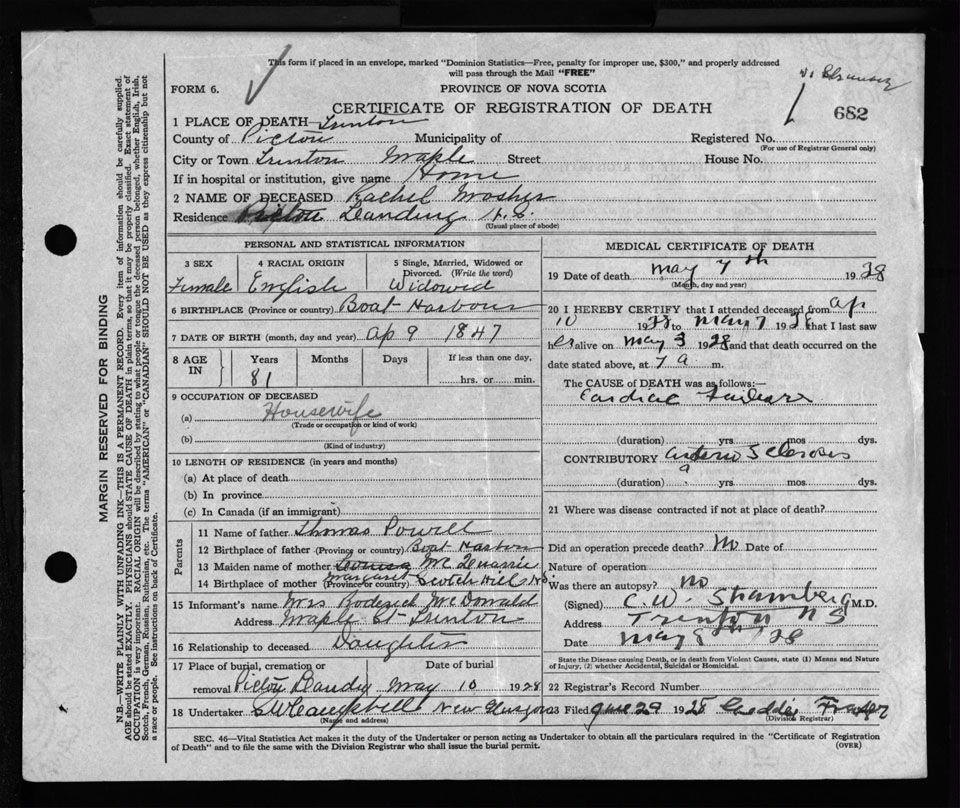 This form if placed in an envelope, marked "Dominion Statistics—Free, penalty for improper use, $300," and properly addressed
will pass through the Mail "FREE"
FORM 6.
PROVINCE OF NOVA SCOTIA
CERTIFICATE OF REGISTRATION OF DEATH
682
1 PLACE OF DEATH Trenton
County of Pictou Municipality of Registered No.
(For use of Registrar General only)
City or Town Trenton Maple Street House No.
If in hospital or institution, give name Home
2 NAME OF DECEASED Rachel Mosher
Residence Pictou Landing N.S.
(Usual place of abode)
PERSONAL AND STATISTICAL INFORMATION
3 SEX 4 RACIAL ORIGIN 5 Single, Married, Widowed or
Divorced. (Write the word)
Female English Widowed
6 BIRTHPLACE (Province or country) Boat Harbour
7 DATE OF BIRTH (month, day and year) Ap 9 1847
8 AGE IN Years Months Days If less than one day,
81 hrs. or min.
9 OCCUPATION OF DECEASED
(a) Housewife
(Trade or occupation or kind of work)
(b)
(Kind of industry)
10 LENGTH OF RESIDENCE (in years and months)
(a) At place of death
(b) In province
(c) In Canada (if an immigrant)
Parents
11 Name of father Thomas Powell
12 Birthplace of father (Province or country) Boat Harbour
13 Maiden name of mother Louisa Mc
Margaret
14 Birthplace of mother (Province or country) Scotch Hill N.S.
15 Informant's name Mrs Roderick McDonald
Address Maple St Trenton
16 Relationship to deceased Daughter
17 Place of burial, cremation or Date of burial
removal Pictou Landing May 10 1928
18 Undertaker New Glasgow
(Name and address)
MEDICAL CERTIFICATE OF DEATH
19 Date of death May 7th 1928
(Month, day and year)
20 I HEREBY CERTIFY that I attended deceased from Ap
10 1928 to May 7 1928 that I last saw
her alive on May 3 1928 and that death occurred on the
date stated above, at 7 a m.
The CAUSE OF DEATH was as follows:—
Cardiac Failure
(duration) yrs. mos dys.
CONTRIBUTORY Arterio Sclerosis
(duration) yrs. mos. dys.
21 Where was disease contracted if not at place of death?
Did an operation precede death? No Date of
Nature of operation
Was there an autopsy? no
(Signed) C. W. Stramberg M.D.
Address Trenton N S
Date May 8th 28
State the Disease causing Death, or in death from Violent Causes, state (1) Means and Nature
of Injury, (2) whether Accidental, Suicidal or Homicidal.
22 Registrar's Record Number
23 Filed June 29 1928 Fraser
(Division Registrar)
SEC. 46—Vital Statistics Act makes it the duty of the Undertaker or person acting as Undertaker to obtain all the particulars required in the "Certificate of Registration
of Death" and to file the same with the Division Registrar who shall issue the burial permit.
(OVER)
MARGIN RESERVED FOR BINDING
N.B.—WRITE PLAINLY WITH UNFADING INK—THIS IS A PERMANENT RECORD. Every item of information should be carefully supplied.
AGE should be stated EXACTLY. PHYSICIANS should STATE CAUSE OF DEATH in plain terms, so that it may be properly classified. Exact statement of
OCCUPATION is very important. RACIAL ORIGIN will be described by stating to what people or tongue the deceased person belonged, whether English, Irish,
Scotch, French, German, Russian, Ruthenian, etc. The terms "AMERICAN" or "CANADIAN" SHOULD NOT BE USED as they express citizenship but not
a race or people. See instructions on back of Certificate.